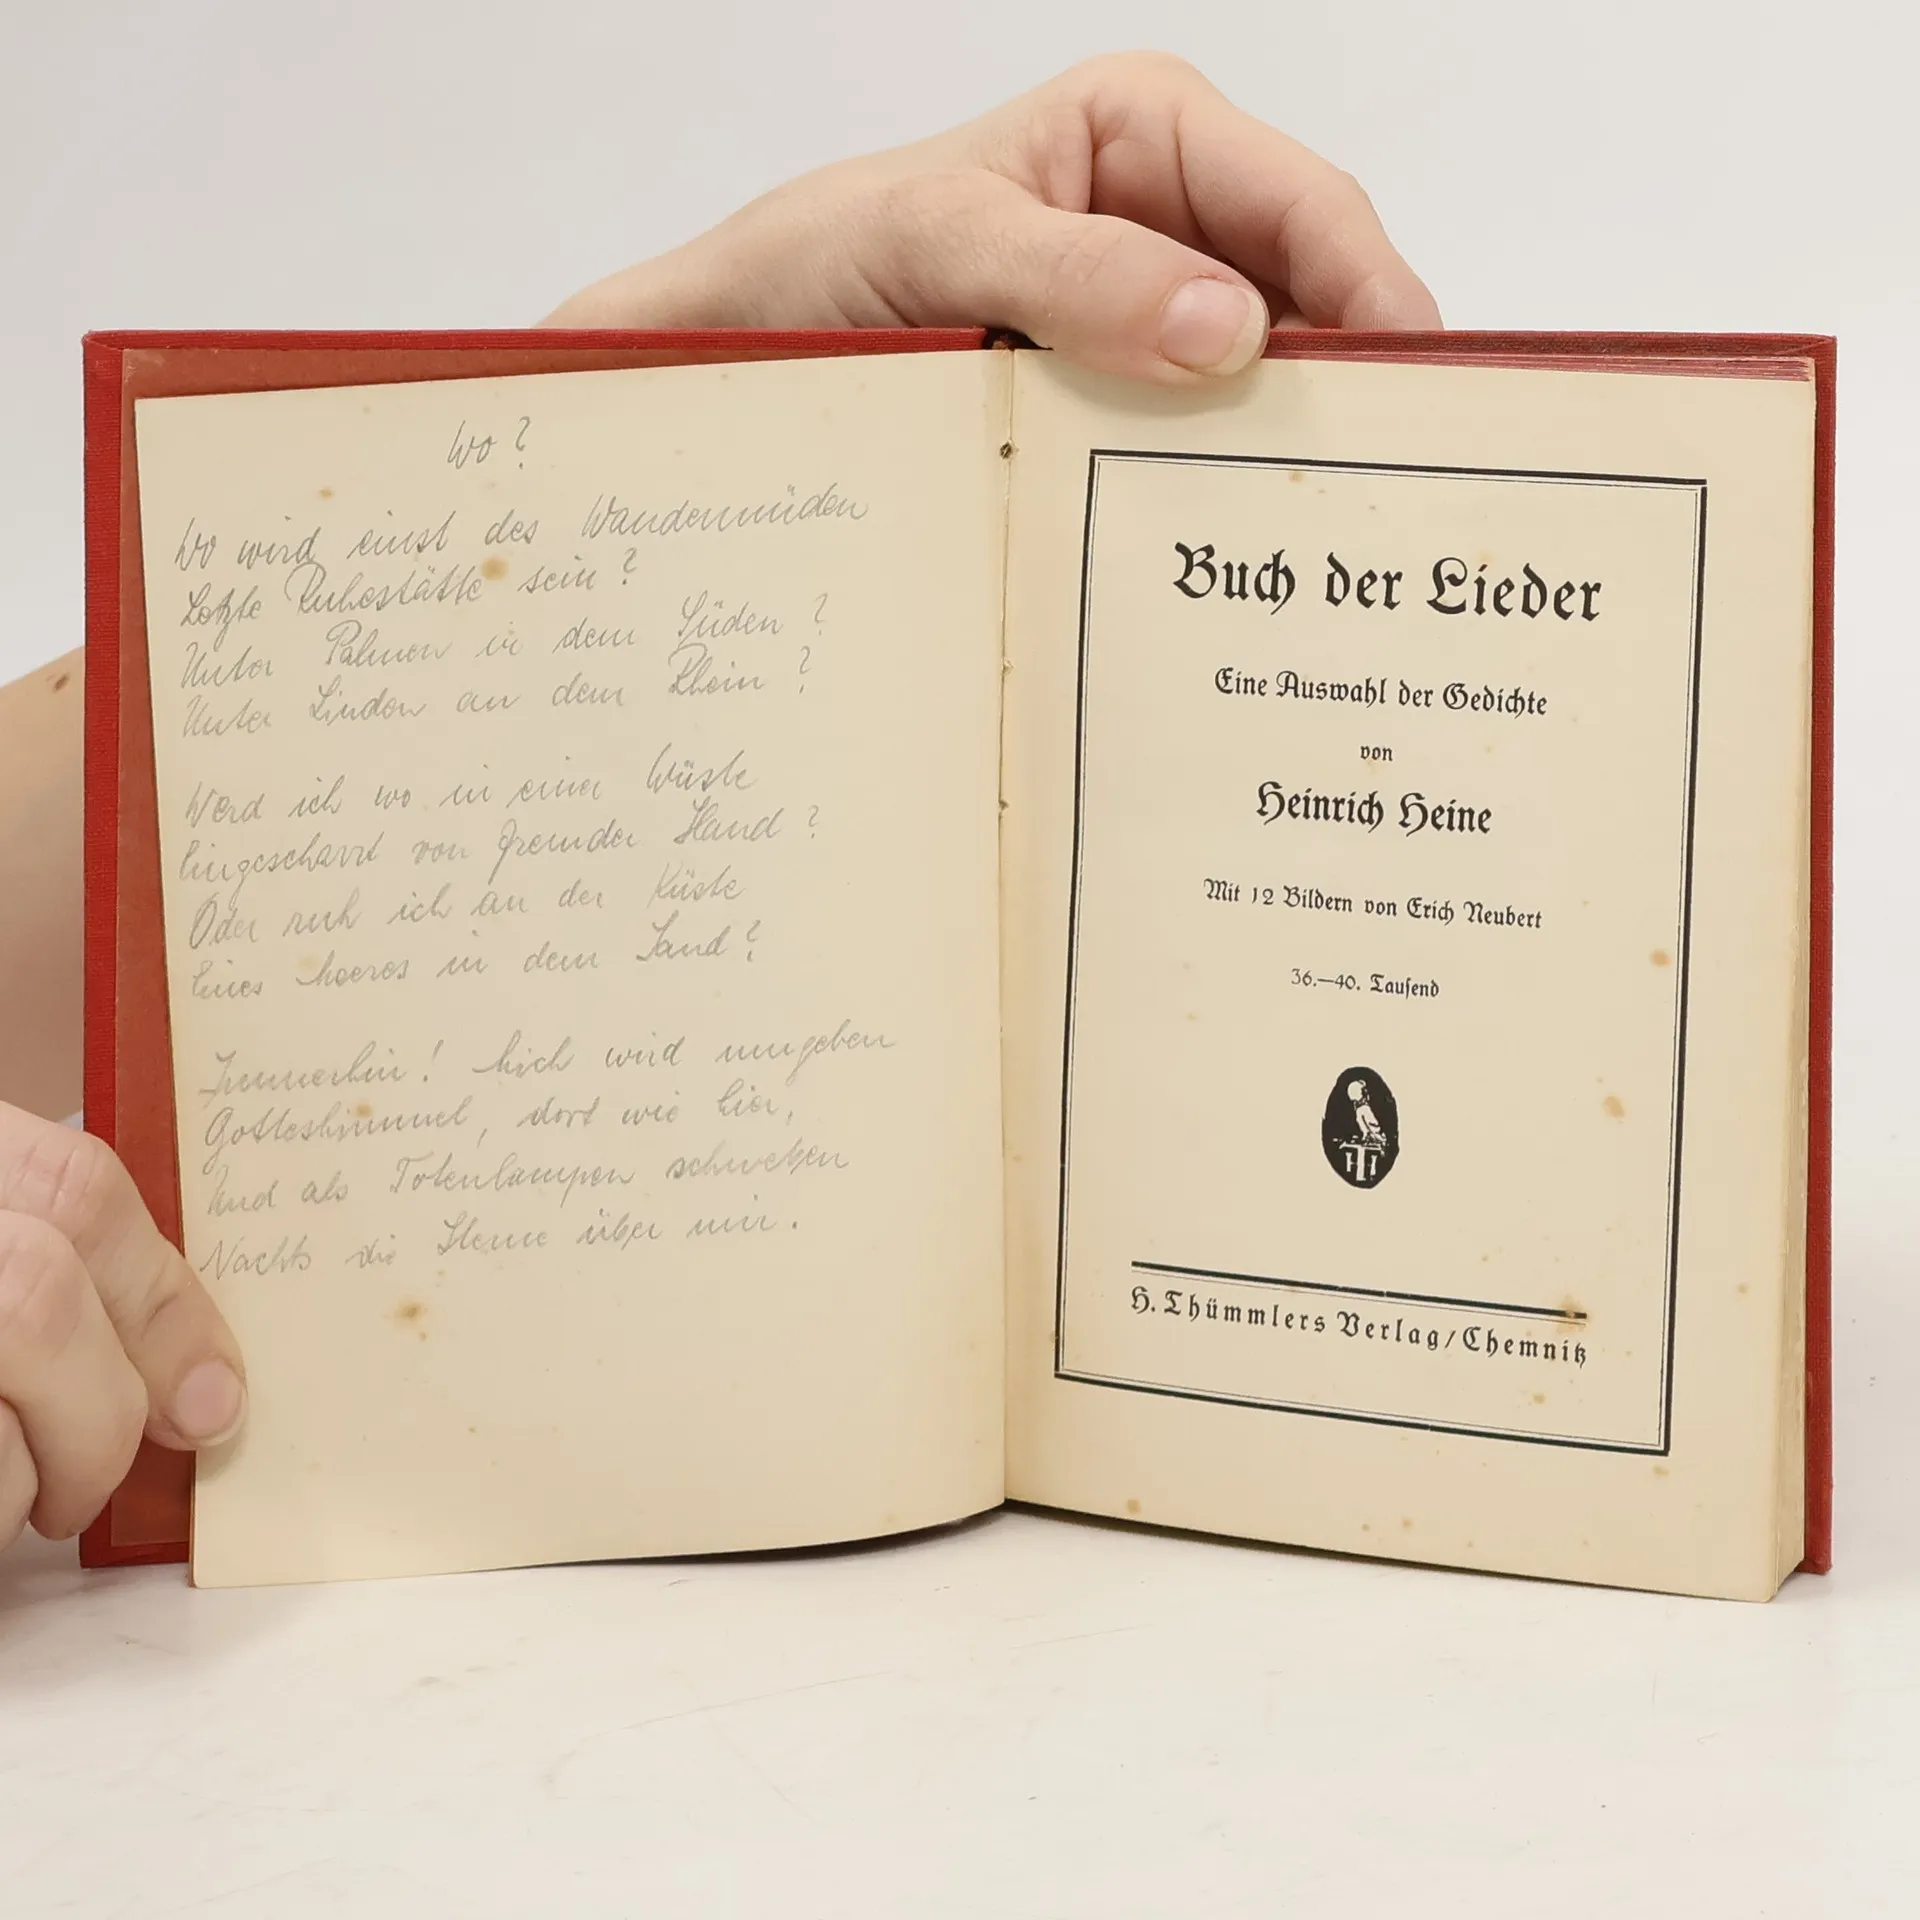 Wo?
Wo wird einst des Wandermüden
Letzte Ruhestätte sein?
Unter Palmen in dem Süden?
Unter Linden an dem Rhein?
Werd ich wo in einer Wüste
Eingescharrt von fremder Hand?
Oder ruh ich an der Küste
Eines Meeres in dem Sand?
Immerhin! Mich wird umgeben
Gotteshimmel, dort wie hier,
Und als Totenlampen schweben
Nachts die Sterne über mir.
Buch der Lieder
Eine Auswahl der Gedichte
von
Heinrich Heine
Mit 12 Bildern von Erich Neubert
36.—40. Tausend
HTJ
H. Thümmlers Verlag/Chemnitz